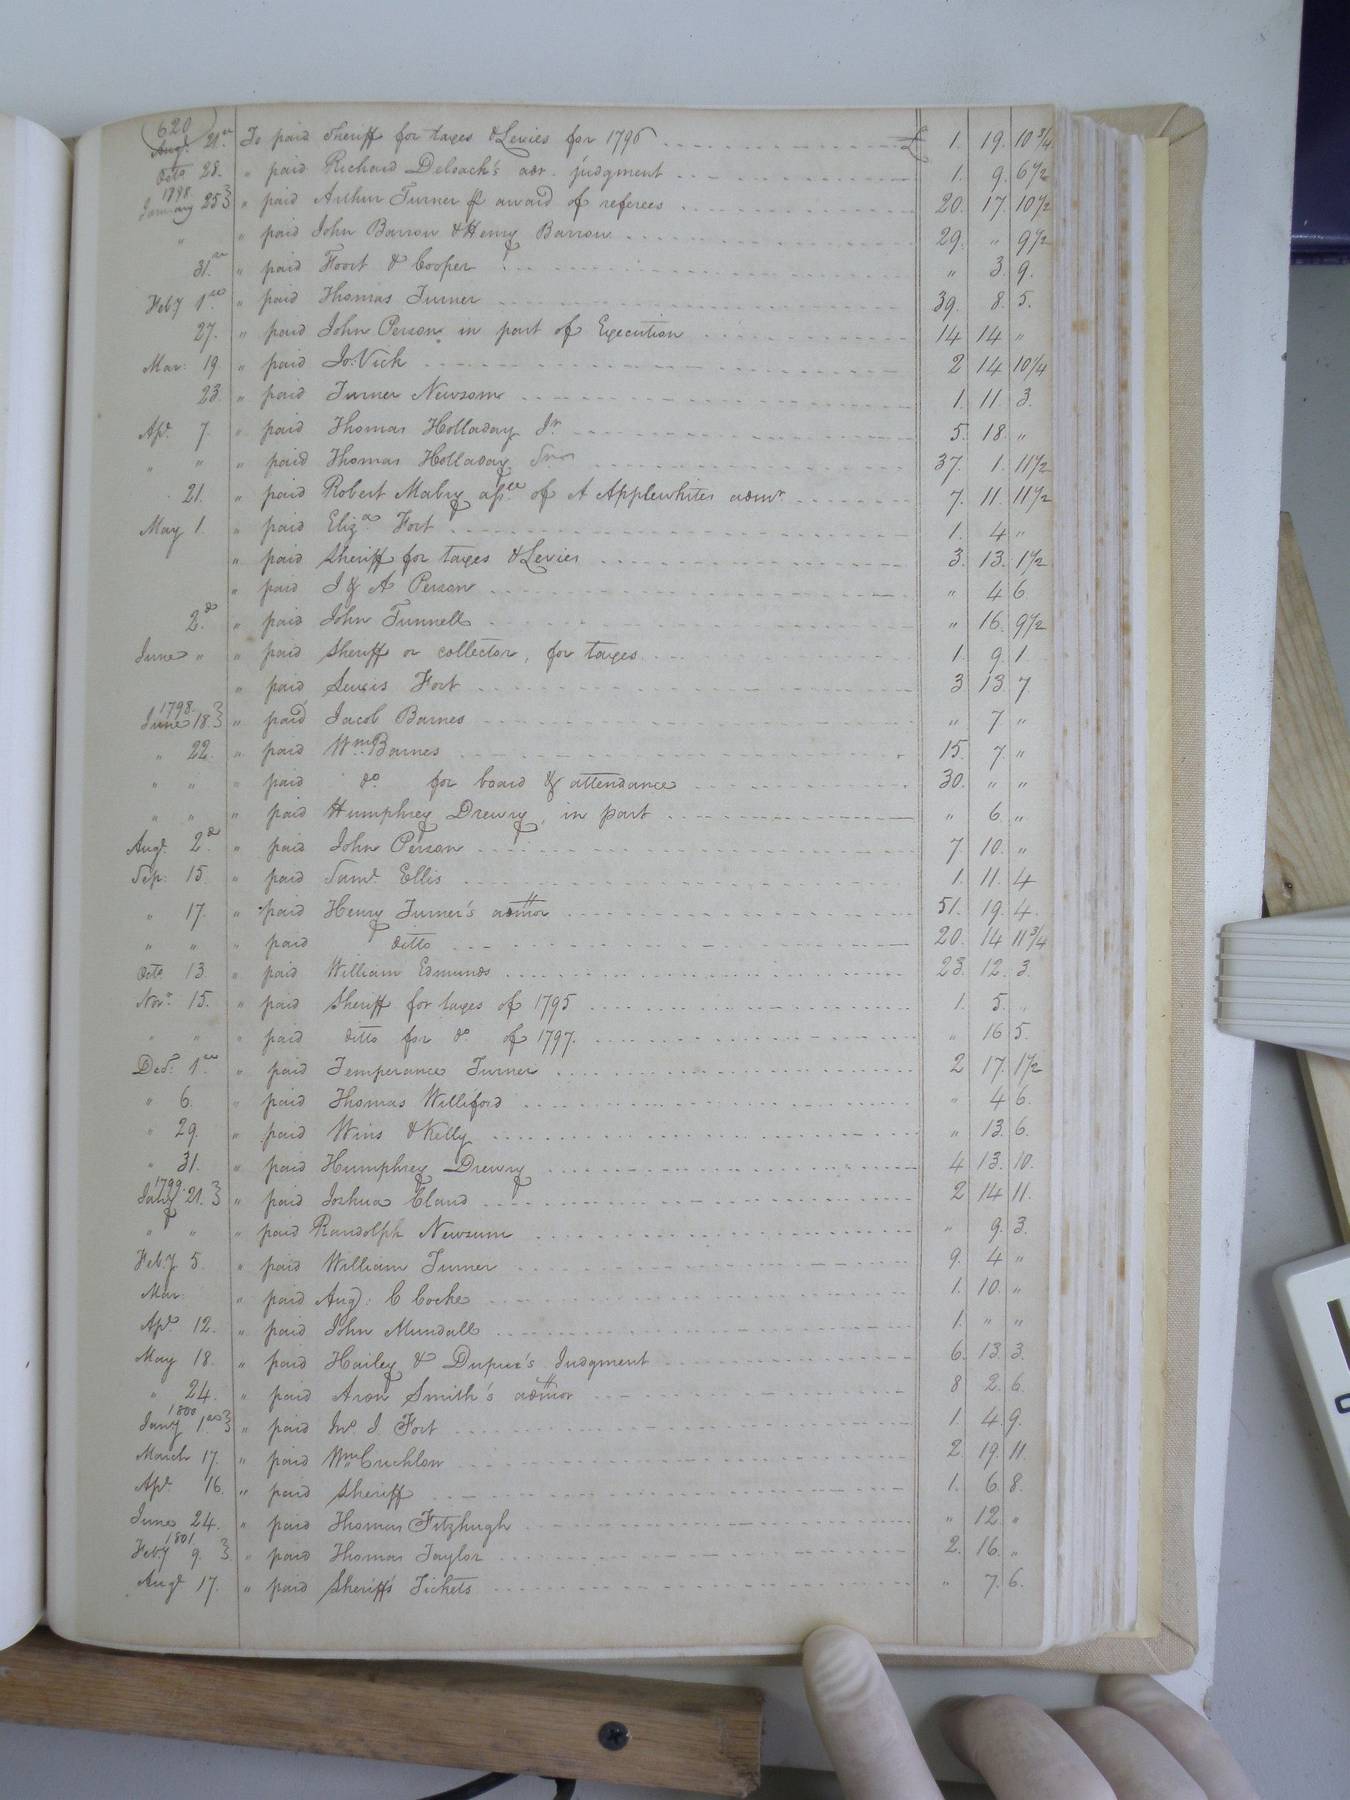 620
Augt 21st To paid Sheriff for taxes & Levies for 1796 £ 1. 19. 10 3/4
Octo 28. " paid Richard Deloach's adr. judgment 1. 9. 6 1/2
1798.
January 25 } " paid Arthur Turner p award of referees 20. 17. 10 1/2
" " paid John Barrow & Henry Barrow 29. " 9 1/2
31st " paid Foort & Cooper " 3. 9.
Feby 1st " paid Thomas Turner 39. 8. 5.
27. " paid John Person in part of Execution 14 14 "
Mar: 19. " paid Jo: Vick 2 14 10 1/4
23. " paid Turner Newsom 1. 11. 3.
Apl. 7. " paid Thomas Holladay Jr 5. 18. "
" " " paid Thomas Holladay Snr 37. 1. 11 1/2
21. " paid Robert Mabry assee of A Applewhites admr 7. 11. 11 1/2
May 1. " paid Eliza Fort 1. 4 "
" paid Sheriff for taxes & Levies 3. 13. 1 1/2
" paid J & A Person " 4 6
2.d " paid John Tunnell " 16. 9 1/2
June " " paid Sheriff or collector, for taxes 1. 9. 1.
" paid Lewis Fort 3 13. 7.
1798.
June 18. } " paid Jacob Barnes " 7 "
" 22. " paid Wm Barnes 15. 7. "
" " " paid do. for board & attendance 30. " "
" " " paid Humphrey Drewry, in part " 6. "
Augt. 2.d " paid John Person 7. 10. "
Sep: 15. " paid Saml. Ellis 1. 11. 4
" 17. " paid Henry Turner's admor 51. 19. 4.
" " " paid ditto 20. 14 11 3/4
Octo 13. " paid William Edmunds 23. 12. 3.
Novr. 15. " paid Sheriff for taxes of 1795 1. 5. "
" " " paid ditto for do of 1797. " 16 5.
Decr. 1st " paid Temperance Turner 2 17. 1 1/2
" 6. " paid Thomas Williford " 4 6.
" 29. " paid Wins & Kelly " 13. 6.
" 31. " paid Humphrey Drewry 4 13. 10.
1799.
Jany 21. } " paid Joshua Claud 2 14 11.
" " " paid Randolph Newsum " 9. 3.
Feb.y 5. " paid William Turner 9. 4 "
Mar: " paid Aug: C Cocke 1. 10. "
Apl. 12. " paid John Mundall 1. " "
May 18. " paid Hailey & Dupree's Judgment 6. 13. 3.
" 24. " paid Aron Smith's admor 8 2. 6.
1800
Jany 1st } " paid Jno. J. Fort 1. 4. 9.
March 17. " paid Wm Crichlow 2. 19. 11.
Apl. 16. " paid Sheriff 1. 6 8.
June 24. " paid Thomas Fitzhugh " 12. "
1801
Feb.y 9. } " paid Thomas Taylor 2. 16. "
Augt 17. " paid Sheriffs Tickets " 7. 6.